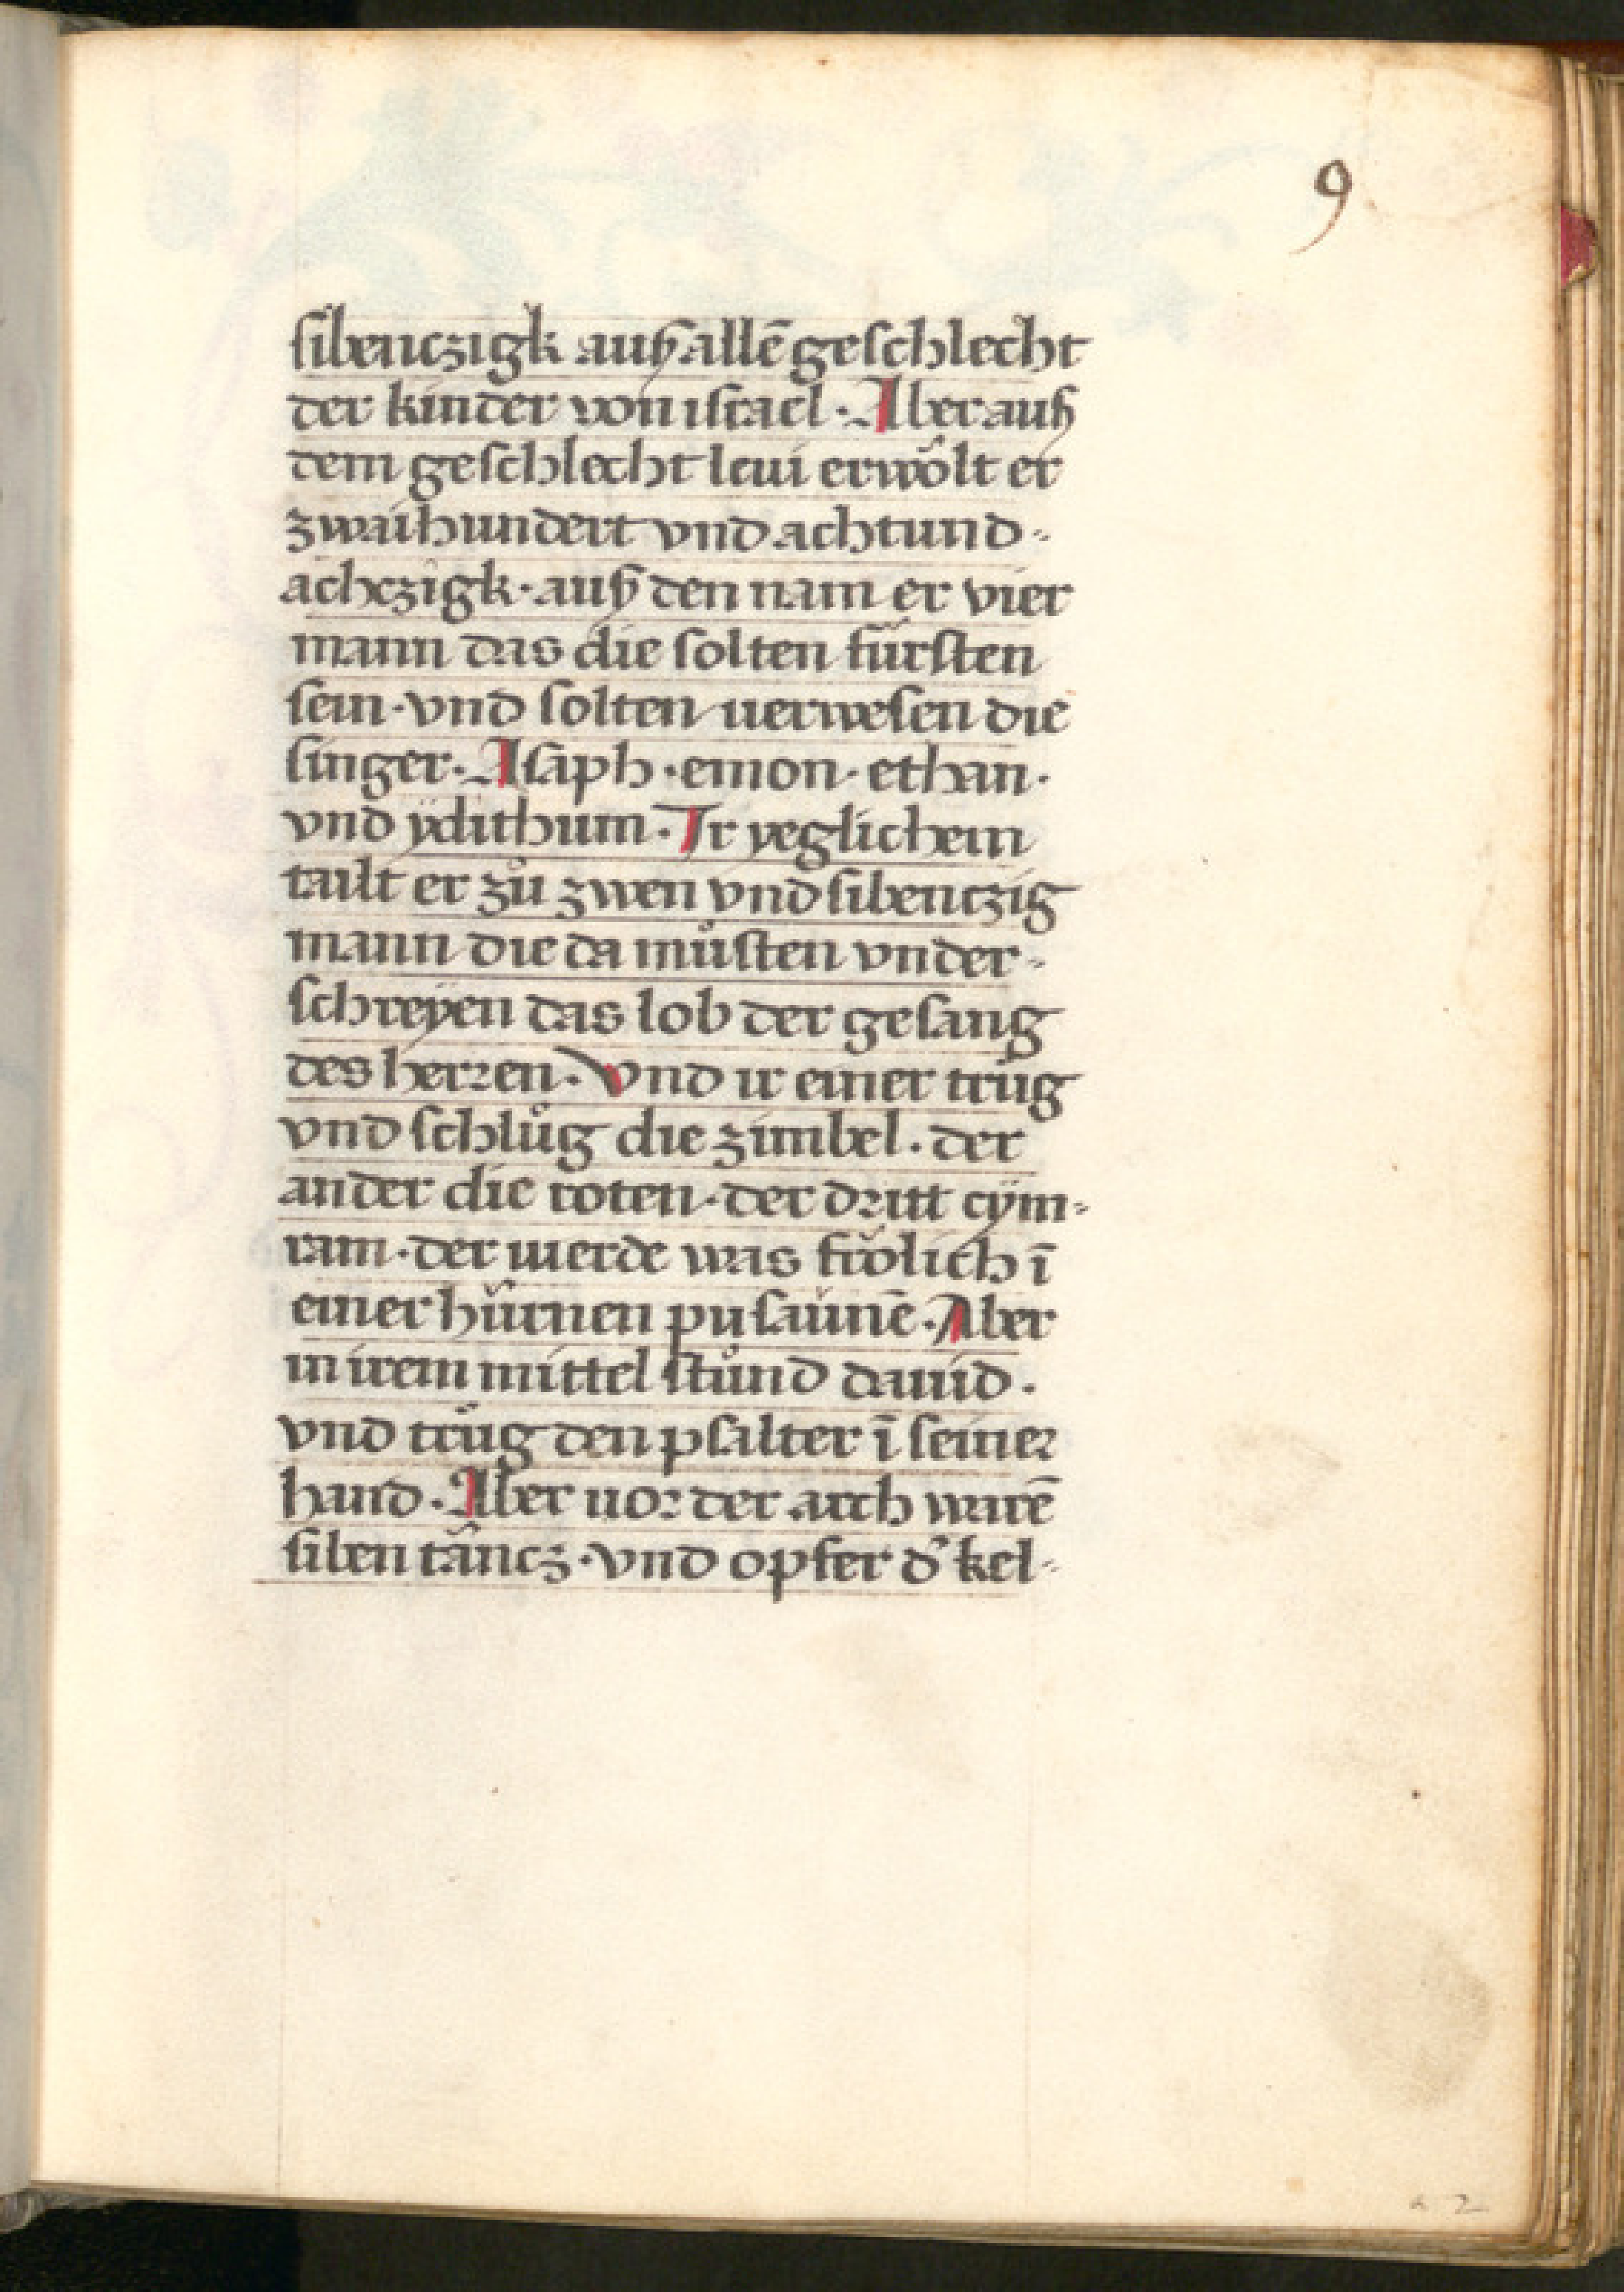 9
sibenczigk auß allē geschlecht
der kinder von israel · Aber auß
dem geschlecht leui erwőlt er
zwaihundert vnd achtund-
achczigk · auß den nam er vier
mann das die solten fürsten
sein · vnd solten uerwesen die
singer · Asaph · emon · ethan ·
vnd ÿdithum · Ir yeglichem
tailt er zů zwen vnd sibenczig
mann die da můsten vnder-
schreÿen das lob der gesang
des herren · Vnd ir einer trůg
vnd schlůg die zimbel · der
ander die roten · der dritt cÿm-
ram · der uierde was frölich ī
einer hürnen pusaunē · Aber
in irem mittel stůnd dauid ·
vnd trůg den psalter ī seiner
hand · Aber uor der arch warē
siben tåncz · vnd opfer d̄ kel-
2